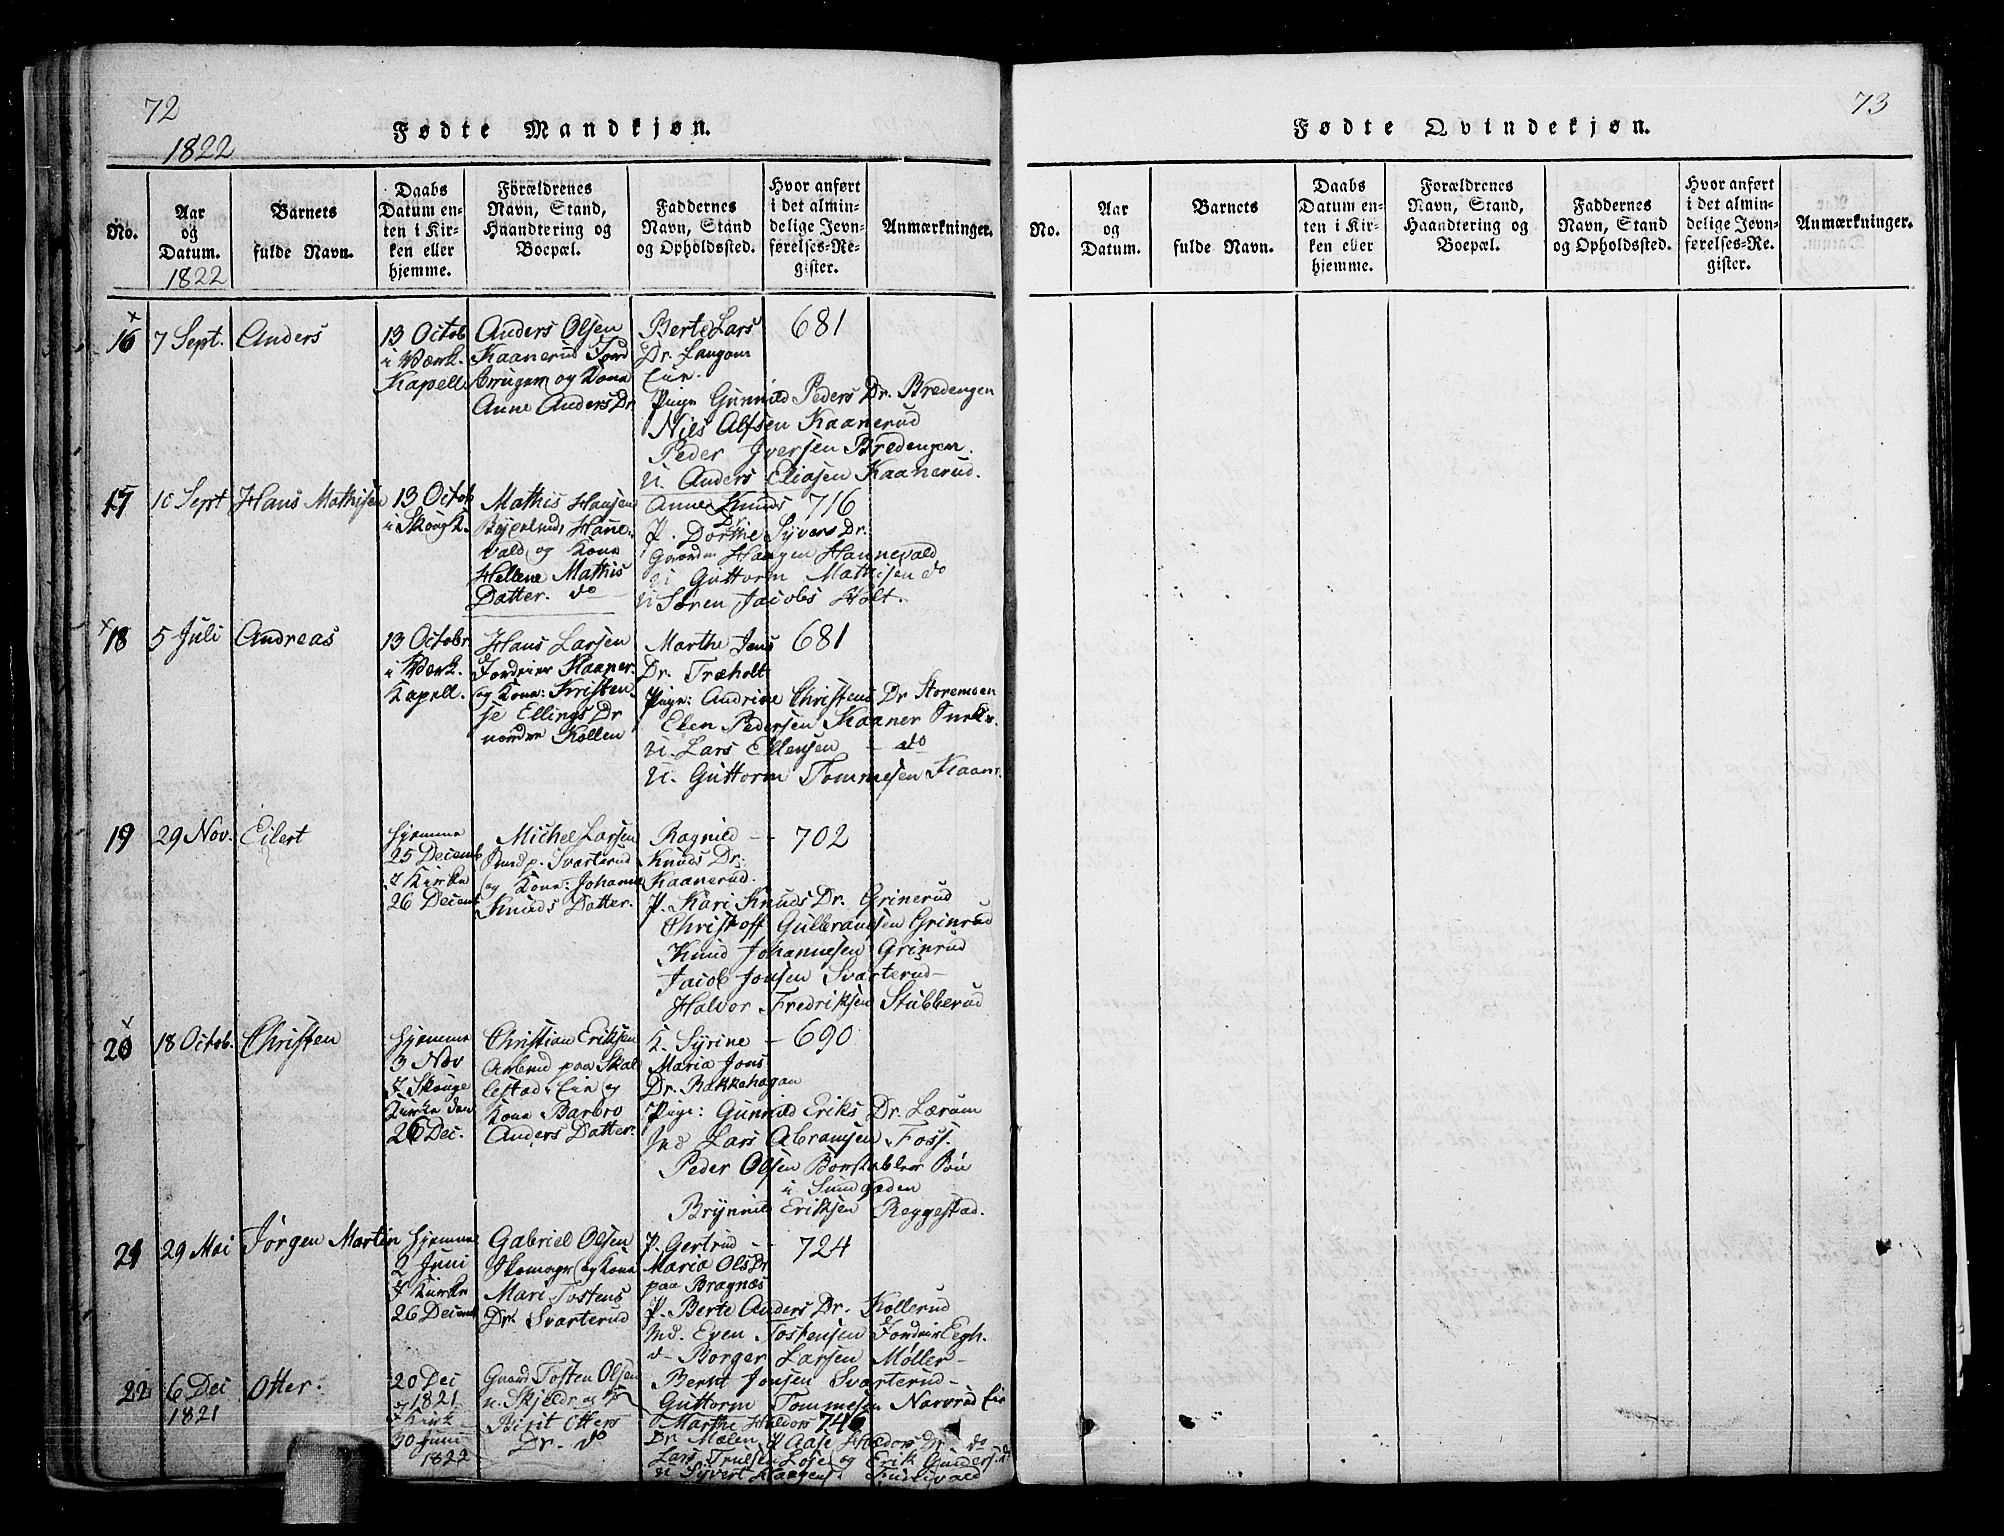 72
Fødte Mandkjøn.
1822
No.
Aar og Datum.
1822
Barnets fulde Navn.
Daabs Datum enten i Kirken eller hjemme.
Forældrenes Navn, Stand, Haandtering og Boepæl.
Faddernes Navn, Stand og Opholdssted.
Hvor anført i det almindelige Jevnførelses-Register.
Anmærkninger.
16
7 Sept.
Anders
13 Octob
i Værk.
Kapell
Anders Olsen
Kaanerud
og Kone
Anne Anders Dr
Berte Lars
Dr. Langom
Eie.
Pige Gunnild Peders Dr. Bredengen
Nils Alfsen Kaanerud
Peder Iversen Bredengen.
U. Anders Eliasen Kaanerud.
681
17
10 Sept
Hans Mathisen
13 Octob
i Skoug K.
Mathis Hansen
Hanne-
vald og Kone
Hellene Mathis
Datter. do
Anne Knuds
Dr
P. Dorthe Syvers Dr.
Haagen Hannevald
U Guttorm Mathisen do
U Søren Jacobs Holt.
716
18
5 Juli
Andreas
13 Octobr
i Værk.
Kapell.
Hans Larsen
Kaaner.
og Kone: Kristen-
se Ellings Dr
nordre Kollen
Marthe Jens
Dr. Træholt
Pige: Andrine Christens Dr Storemoen
Elen Pedersen Kaaner
U. Lars Ellensen - do
U. Guttorm Tommesen Kaaner
681
19
29 Nov.
Eilert
hjemme
25 Decemb
i Kirke
26 Decemb
Michel Larsen
Svarterud
og Kone: Johanne
Knuds Datter.
Ragnild -
Knuds Dr.
Kaanerud.
P. Kari Knuds Dr. Grinerud
Christoff Gulbransen Grinrud
Knud Johannesen Grinrud
Jacob Jonsen Svarterud-
Halvor Fredriksen Stubberud
- 702
20
18 Octob.
Christen
hjemme
3 Nov
i Skouge
Kirke den
26 Dec.
Christian Eriksen
paa Skal
lestad Eie og
Kone Barbro
Anders Datter.
K. Syrine
Maria Jons
Dr. Bakkehagan
Pige: Gunnild Eriks Dr. Lærum
Lars Abramsen Foss.
Peder Olsen
i Sundgaden
Brynnild Eriksen Reggestad.
- 690
21
29 Mai
Jørgen Martin
hjemme
2 Juni
i Kirke
26 Decemb
Gabriel Olsen
Skomager og Kone
Mari Tostens
Dr. Svarterud
P. Gertrud -
Maria Ols Dr
paa Bragnæs
P. Berte Anders Dr. Kollerud
Md. Even Tostensen
d- Borger Larsen Møller-
Bernt Jonsen Svarterud-
Guttorm Tommesen Narvrud Eie
- 724
22
6 Dec
1821
Otter.
20 Dec
1821
i Kirk.
30 Juni
1822
Tosten Olsen
Birit Otters
Dr. do
Marthe Haldors
Dr. Mælen P Aase Haldors Dr. do
Lars Trulsen Løse og Erik Gunders. do
U Syvert Haagens
746
73
Fødte Qvindekjøn.
No.
Aar og Datum.
Barnets fulde Navn.
Daabs Datum enten i Kirken eller hjemme.
Forældrenes Navn, Stand, Haandtering og Boepæl.
Faddernes Navn, Stand og Opholdssted.
Hvor anført i det almindelige Jevnførelses-Register.
Anmærkninger.